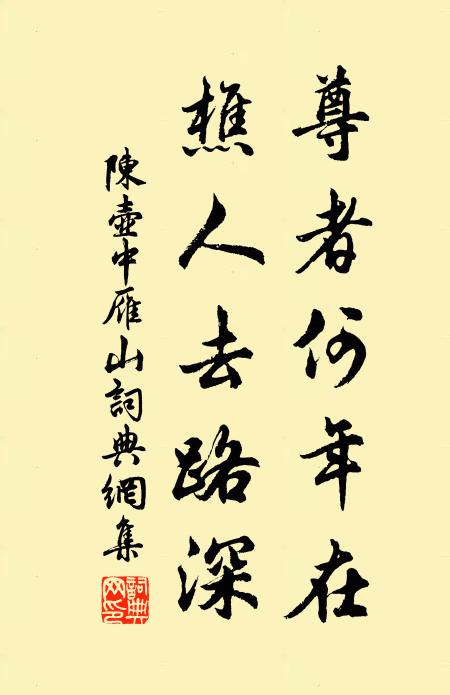 尊者何年在
樵人去路深
陳壺中雁山詞典網集
詞典
网印